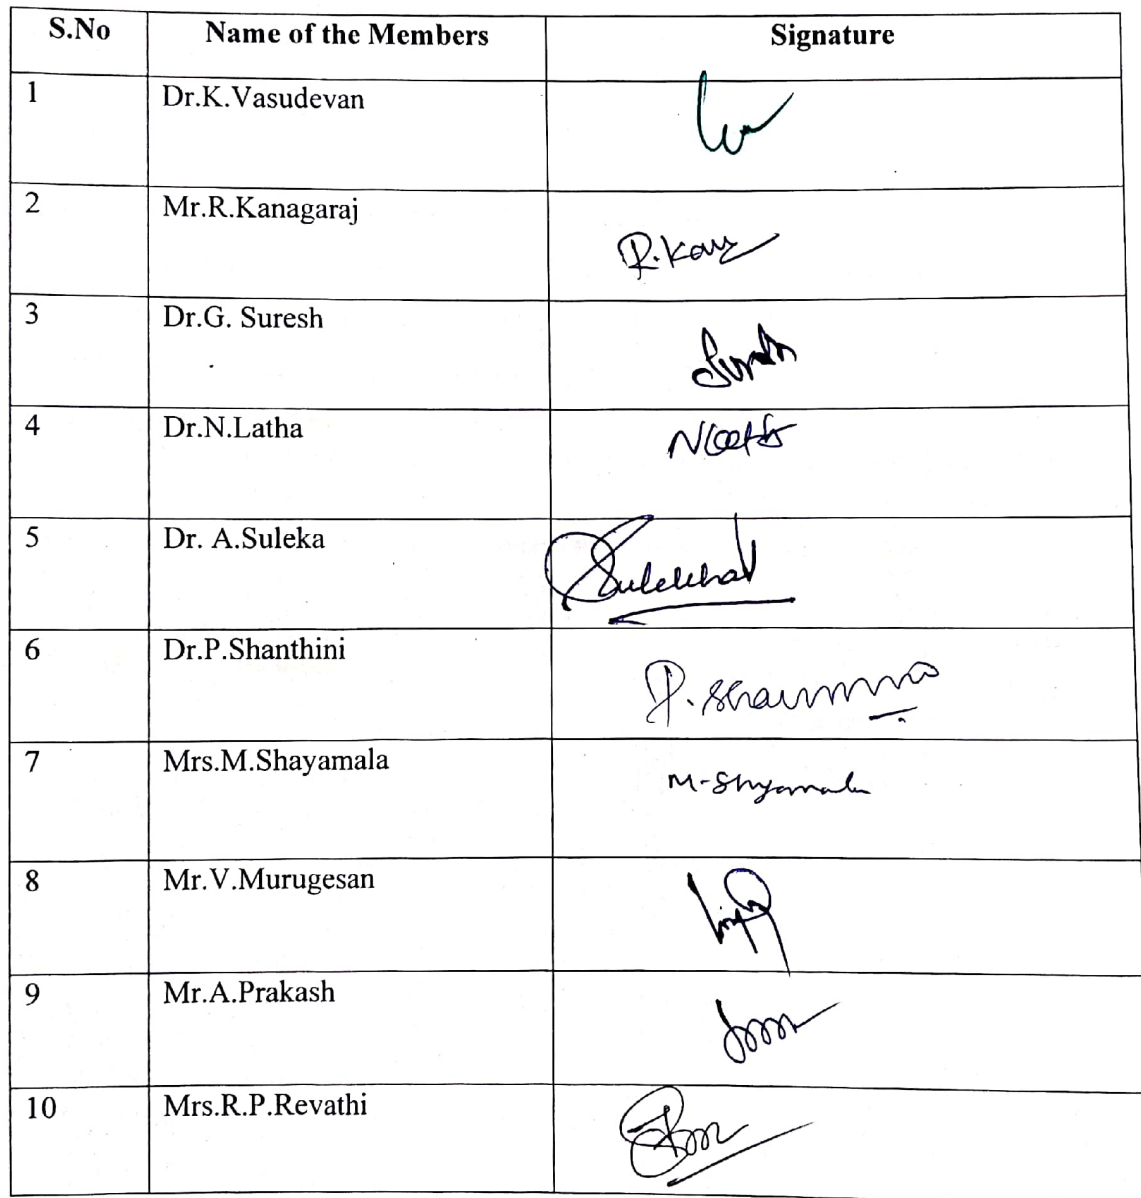 S.No Name of the Members Signature
1 Dr.K.Vasudevan
2 Mr.R.Kanagaraj
R.Kan
3 Dr.G. Suresh
Suresh
4 Dr.N.Latha
NLatha
5 Dr. A.Suleka
Sulekha
6 Dr.P.Shanthini
7 Mrs.M.Shayamala
M-Shyamala
8 Mr.V.Murugesan
9 Mr.A.Prakash
10 Mrs.R.P.Revathi